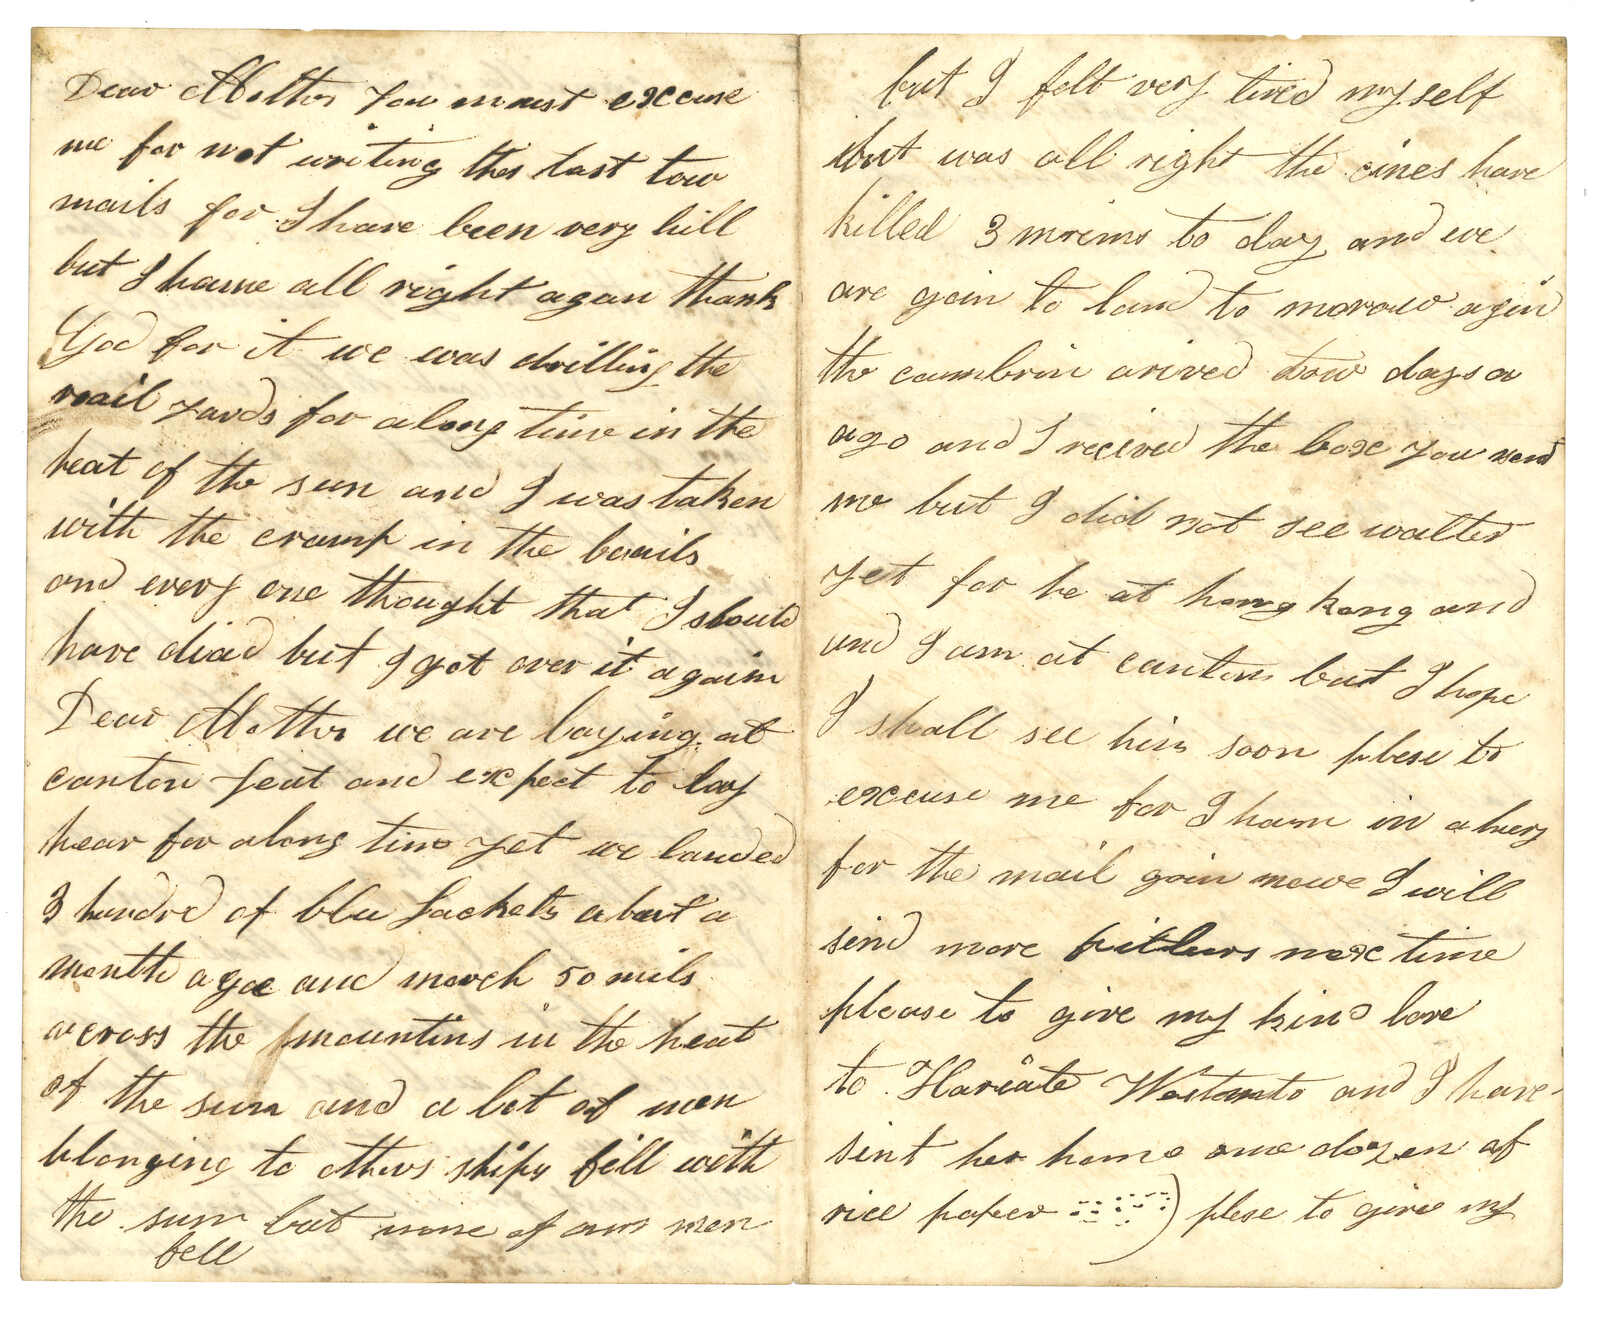 Dear Mother you must excuse
me for not writing thes last tow
mails for I have been very hill
but I hame all right agan thank
God for it we was drilling the
mail yards for along time in the
heat of the sun and I was taken
with the cramp in the bouils
and every one thought that I should
have diad but I got over it again
Dear Mother we are laying at
canton yeat and expect to lay
hear for along time yet we landed
3 hundred of blu Jackets about a
month agoe and march 50 mils
across the mountins in the heat
of the sun and a lot of men
blonging to others ships fell with
the sun but none of our men
fell
but I felt very tired my self
but was all right the cines have
killed 3 mreins to day and we
are goin to land to morow agin
the cambrin arived tow days a
ago and I recived the boxe you send
me but I did not see walter
yet for he at hong kong and
and I am at canton but I hope
I shall see him soon plese to
excuse me for I ham in a hury
for the mail goin nowe I will
send more nexe time
please to give my kind love
to Hariate and I have
sent her home one dozen of
rice paper ) plese to give my